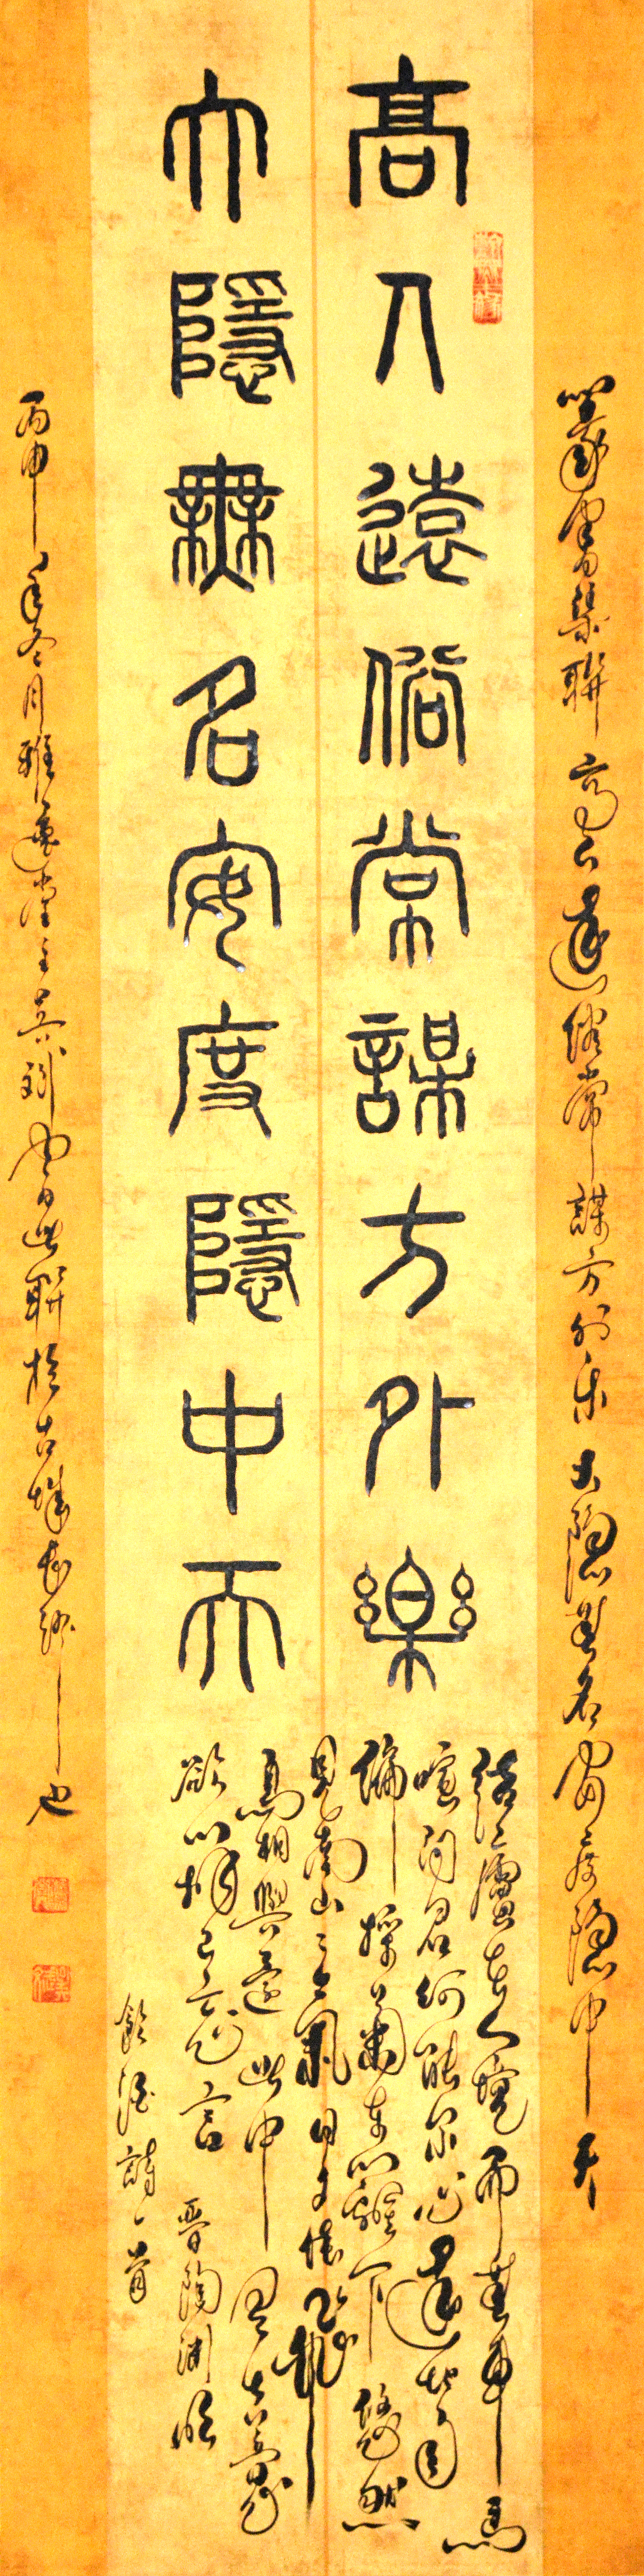 篆書聯高人遠俗常謀方外樂大隱無名安度隱中天
高人遠俗常謀方外樂
大隱無名安度隱中天
結廬在人境而無車馬
喧問君何能爾心遠地自
偏採菊東籬下悠然
見南山山氣日夕佳飛
鳥相與還此中有真意
欲辨已忘言 晉陶淵明
飲酒詩一首
丙申年冬月雅堂主此聯於古城長沙也